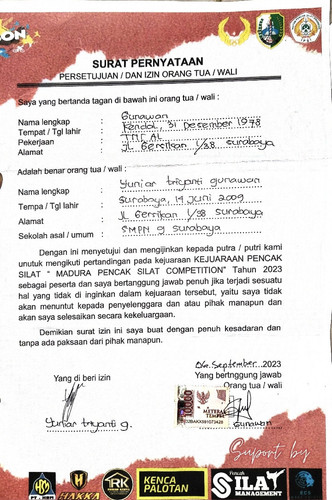 SURAT PERNYATAAN
PERSETUJUAN / DAN IZIN ORANG TUA / WALI
Saya yang bertanda tagan di bawah ini orang tua / wali :
Nama lengkap : Gunawan
Tempat / Tgl lahir : Kendal, 31 Desember 1978
Pekerjaan : TNI AL
Alamat : Jl Gersikan 1/38 Surabaya
Adalah benar orang tua / wali :
Nama lengkap : Yuniar triyanti gunawan
Tempa / Tgl lahir : Surabaya, 14 Juni 2009
Alamat : Jl Gerrikan 1/38 Surabaya
Sekolah asal / umum : SMPN 9 Surabaya
Dengan ini menyetujui dan mengijinkan kepada putra / putri kami
unutuk mengikuti pertandingan pada kejuaraan KEJUARAAN PENCAK
SILAT " MADURA PENCAK SILAT COMPETITION" Tahun 2023
sebagai peserta dan saya bertanggung jawab penuh jika terjadi sesuatu
hal yang tidak di inginkan dalam kejuaraan tersebut, yaitu saya tidak
akan menuntut kepada penyelenggara dan atau pihak manapun dan
akan saya selesaikan secara kekeluargaan.
Demikian surat izin ini saya buat dengan penuh kesadaran dan
tanpa ada paksaan dari pihak manapun.
September 2023
Yang di beri izin
Yang bertnggung jawab
Orang tua / wali
10000
METERAI
TEMPEL
Yuniar triyanti g.
Gunawan
Suport by
HAKKA
RK
KENCA
PALOTAN
Pencak
SILAT
MANAGEMENT